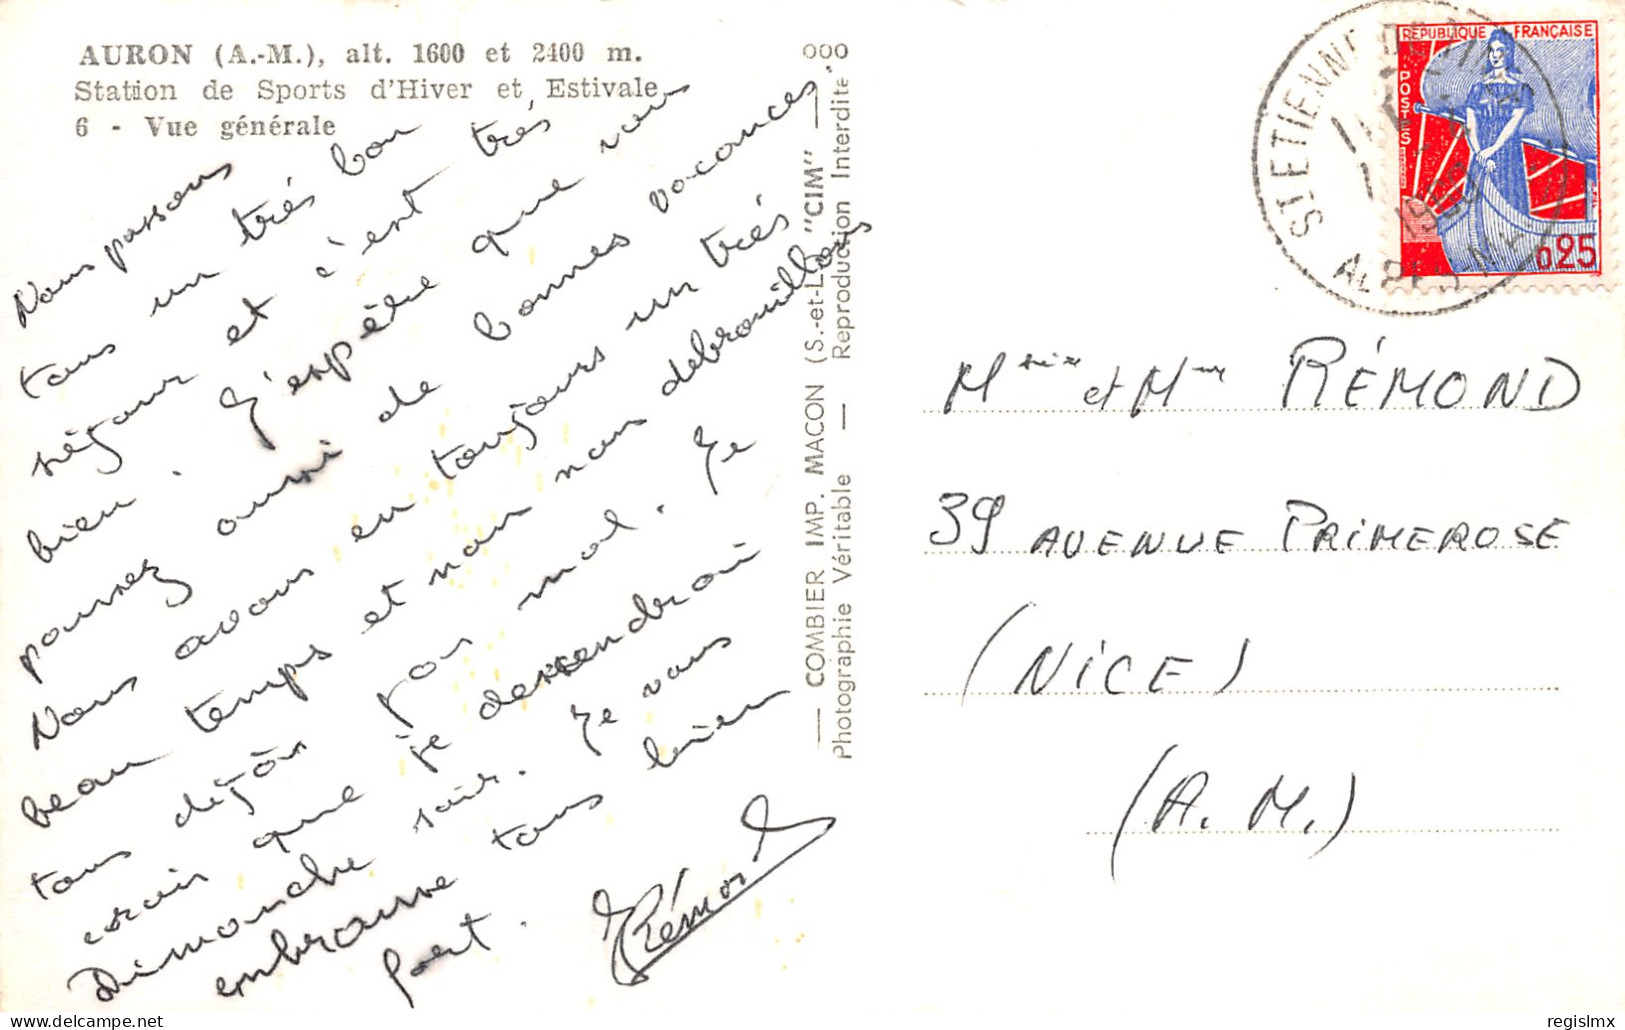 AURON (A.-M.), alt. 1600 et 2400 m.
Station de Sports d'Hiver et Estivale
6 - Vue générale
Nous passons
tous un très bon
séjour et c'est très
bien. J'espère que vous
pourrez aussi de bonnes vacances.
Nous avons eu toujours un très
beau temps et nous nous débrouillons
tous déjà pas mal. Je
crois que je dessendrai
Dimanche soir. Je vous
embrasse tous bien
fort.
JRémond
COMBIER IMP. MACON (S.-et-L.) "CIM"
Photographie Véritable — Reproduction Interdite
000
RÉPUBLIQUE FRANÇAISE
POSTES
0,25
ST ETIENNE
1960
ALPES
et Mme RÉMOND
39 AVENUE PRIMEROSE
(NICE)
(A. M.)
delcampe.net
regislmx